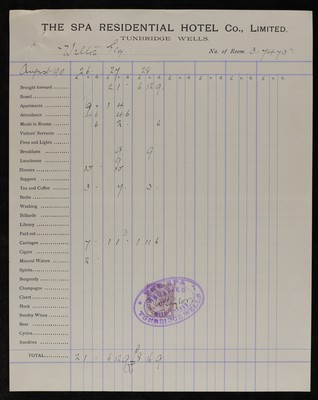 THE SPA RESIDENTIAL HOTEL Co., LIMITED.
TUNBRIDGE WELLS
Esq No. of Room
August 26 27 28
£ s. d. £ s. d. £ s. d. £ s. d. £ s. d. £ s. d. £ s. d.
Brought forward 2 1 6 12 9
Board
Apartments
Attendance
Meals in Rooms 6 2 6
Visitors' Servants
Fires and Lights
Breakfasts 9 9
Luncheons 9
Dinners 15 15
Suppers
Tea and Coffee 3 7 3
Baths
Washing
Billiards
Library
Paid out
Carriages 7 1 1 1 11 6
Cigars
Mineral Waters 2
Spirits
Burgundy
Champagne
Claret
Hock
Sundry Wines
Beer
Cyder
Sundries
THE SPA
TUNBRIDGE WELLS
TOTAL 2 1 6 12 9 8 16 9